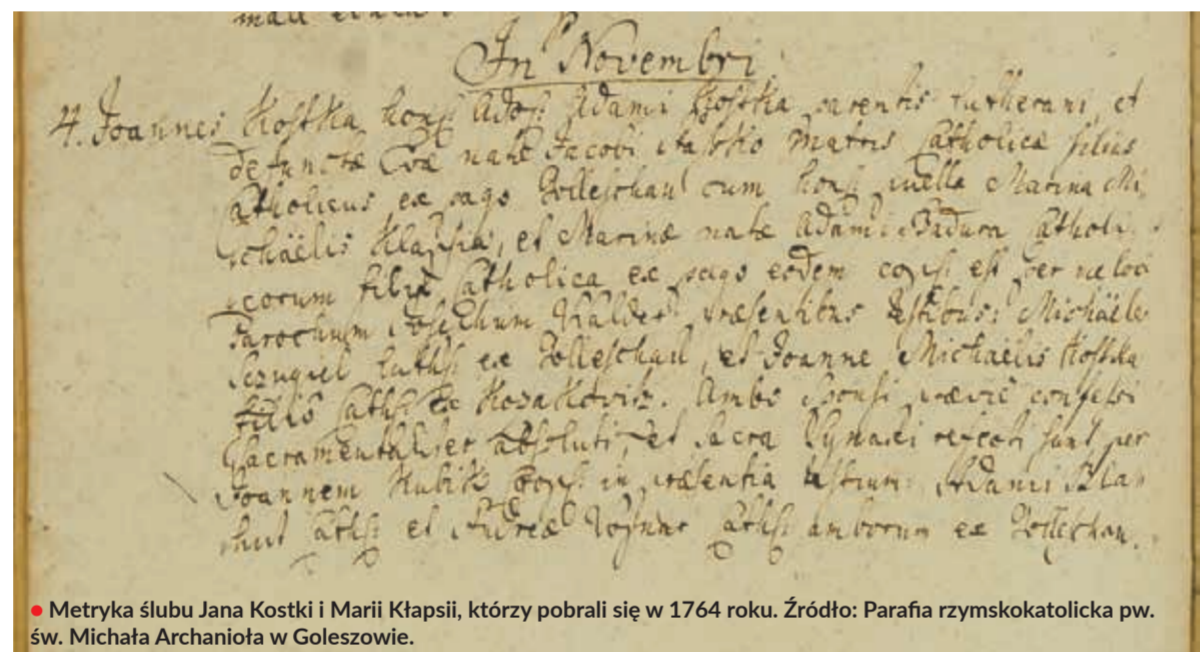 In Novembri
4. Joannes Kostka hons Ados Adami Kostka parentis Lutherani, et
defunctæ Evæ natæ Jacobi matris Catholicæ filius
Catholicus ex pago Golleschau cum hons puella Marina Mi,
chaëlis Klapsia, et Marinæ natæ Adami Badura Catholi,
corum filia Catholica ex pago eodem est per me loci
Parochum Josephum præsentibus testibus: Michaële
Sczugiel ex Golleschau, et Joanne Michaelis Kostka
filio ex Kozakovitz. Ambo Sponsi confessi
Sacramentaliter absoluti, et sacra Synaxi refecti sunt per
Joannem Kubik in præsentia testium: Adami Blan
et Andreæ amborum ex Golleschau.
Metryka ślubu Jana Kostki i Marii Kłapsii, którzy pobrali się w 1764 roku. Źródło: Parafia rzymskokatolicka pw.
św. Michała Archanioła w Goleszowie.